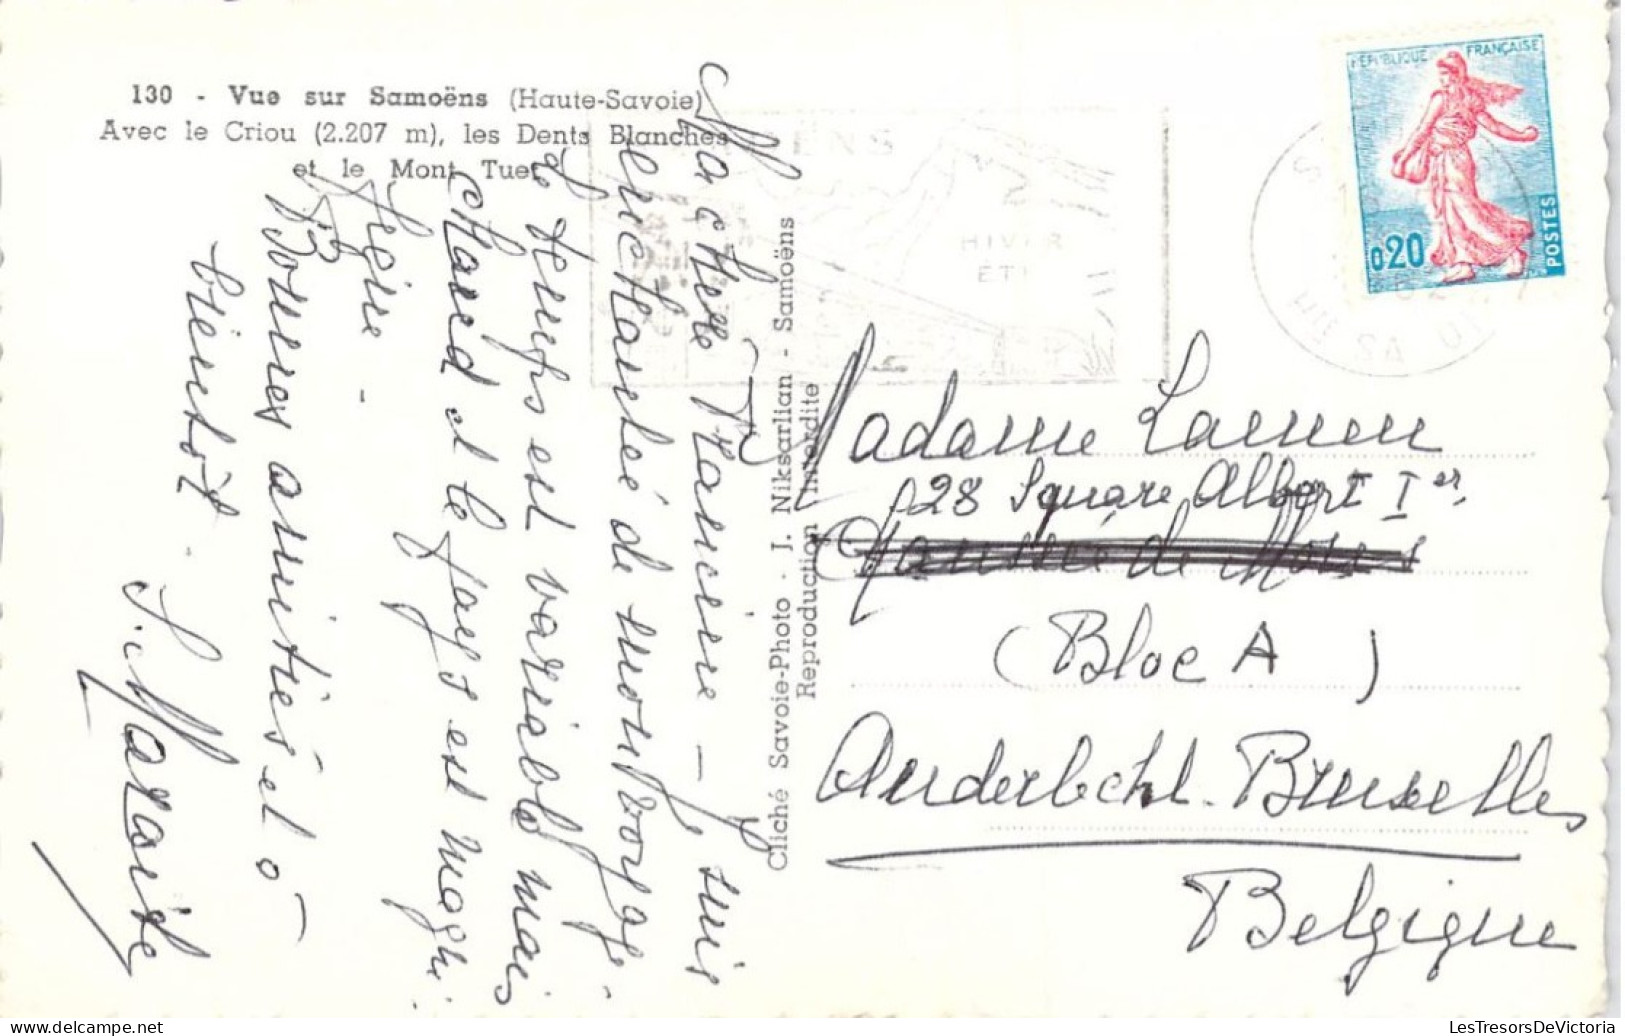 130 - Vue sur Samoëns (Haute-Savoie)
Avec le Criou (2.207 m), les Dents Blanches
et le Mont Tuet
Ma chère Francine – Je suis
enchantée de mon voyage
le temps est variable mais
chaud et le pays est magni-
fique -
Bonnes amitiés et à
bientôt.
S. Marguerite
Cliché Savoie-Photo - J. Niksarlian - Samoëns
Reproduction interdite
HIVER
ÉTÉ
RÉPUBLIQUE FRANÇAISE
0,20
POSTES
Madame
28 Square Albert I er,
Chaussée de Mons
(Bloc A)
Anderlecht. Bruxelles
Belgique
LesTresorsDeVictoria
delcampe.net